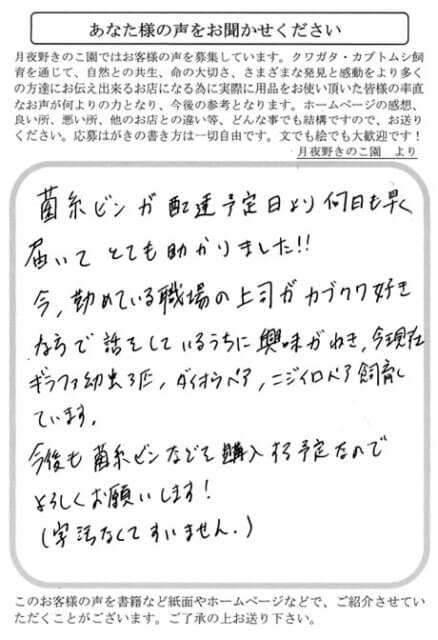 あなた様の声をお聞かせください
月夜野きのこ園ではお客様の声を募集しています。クワガタ・カブトムシ飼
育を通じて、自然との共生、命の大切さ、さまざまな発見と感動をより多く
の方達にお伝え出来るお店になる為に実際に用品をお使い頂いた皆様の率直
なお声が何よりの力となり、今後の参考となります。ホームページの感想、
良い所、悪い所、他のお店との違い等、どんな事でも結構ですので、お送り
ください。応募はがきの書き方は一切自由です。文でも絵でも大歓迎です！
月夜野きのこ園　より
菌糸ビンが配達予定日より何日も早く
届いてとても助かりました!!
今,勤めている職場の上司がカブクワ好き
なようで話をしているうちに興味がわき,今現在
ギラファ幼虫3匹,ダイオウペア,ニジイロペア飼育し
ています.
今後も菌糸ビンなどを購入する予定なので
よろしくお願いします!
(字汚なくてすいません.)
このお客様の声を書籍など紙面やホームページなどで、ご紹介させてい
ただくことがございます。ご了承の上お送り下さい。